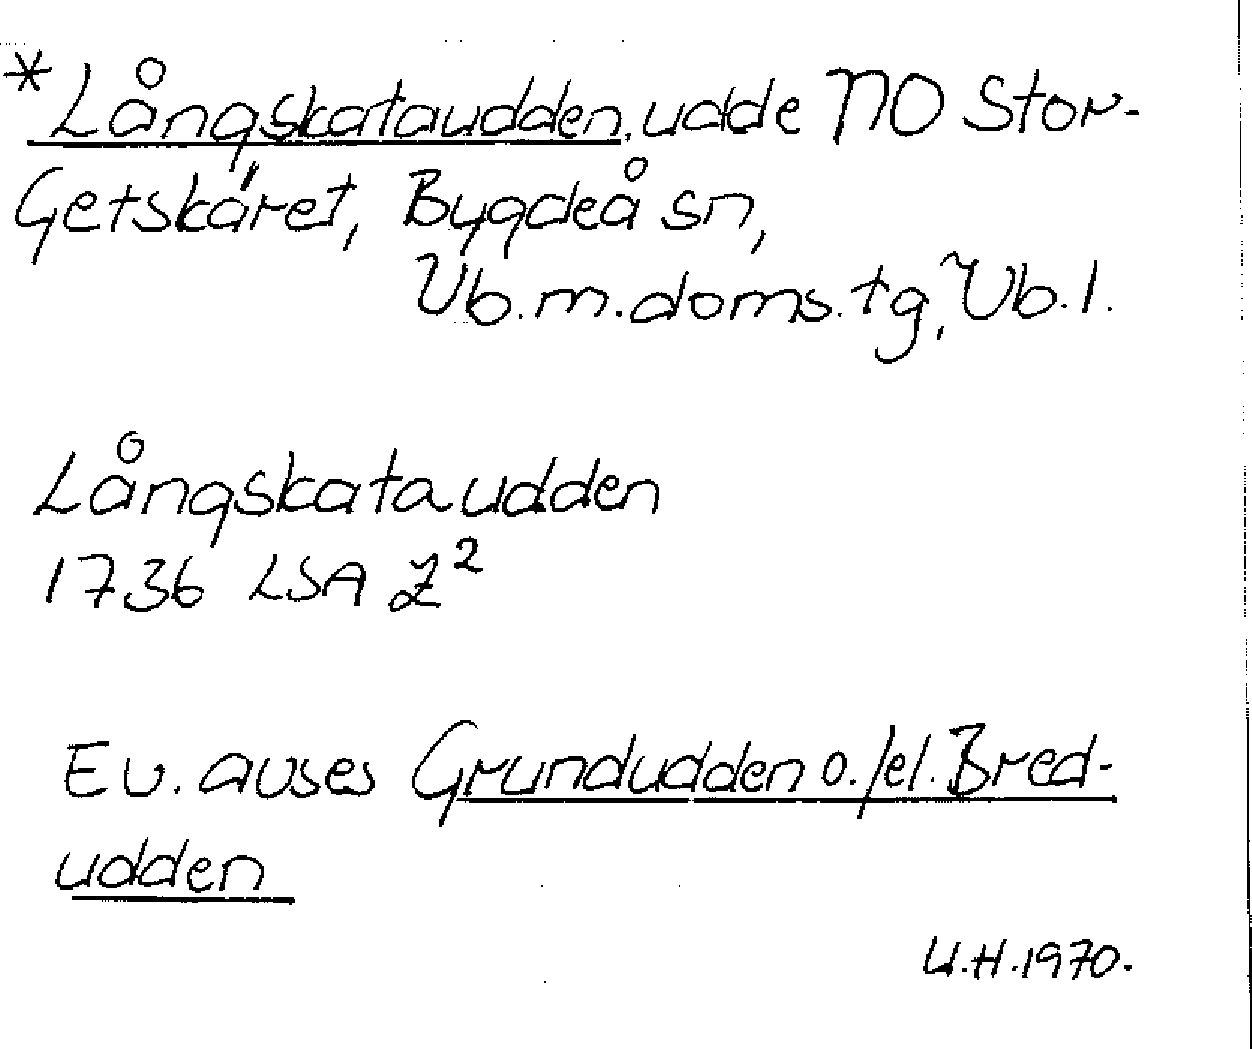 *Långskataudden, udde NO Stor-
Getskäret, Bygdeå sn,
Vb. m. doms. tg, Vb. l.
Långskataudden
1736 LSA Z²
Ev. avses Grundudden o./el. Bred-
udden
U.H. 1970.